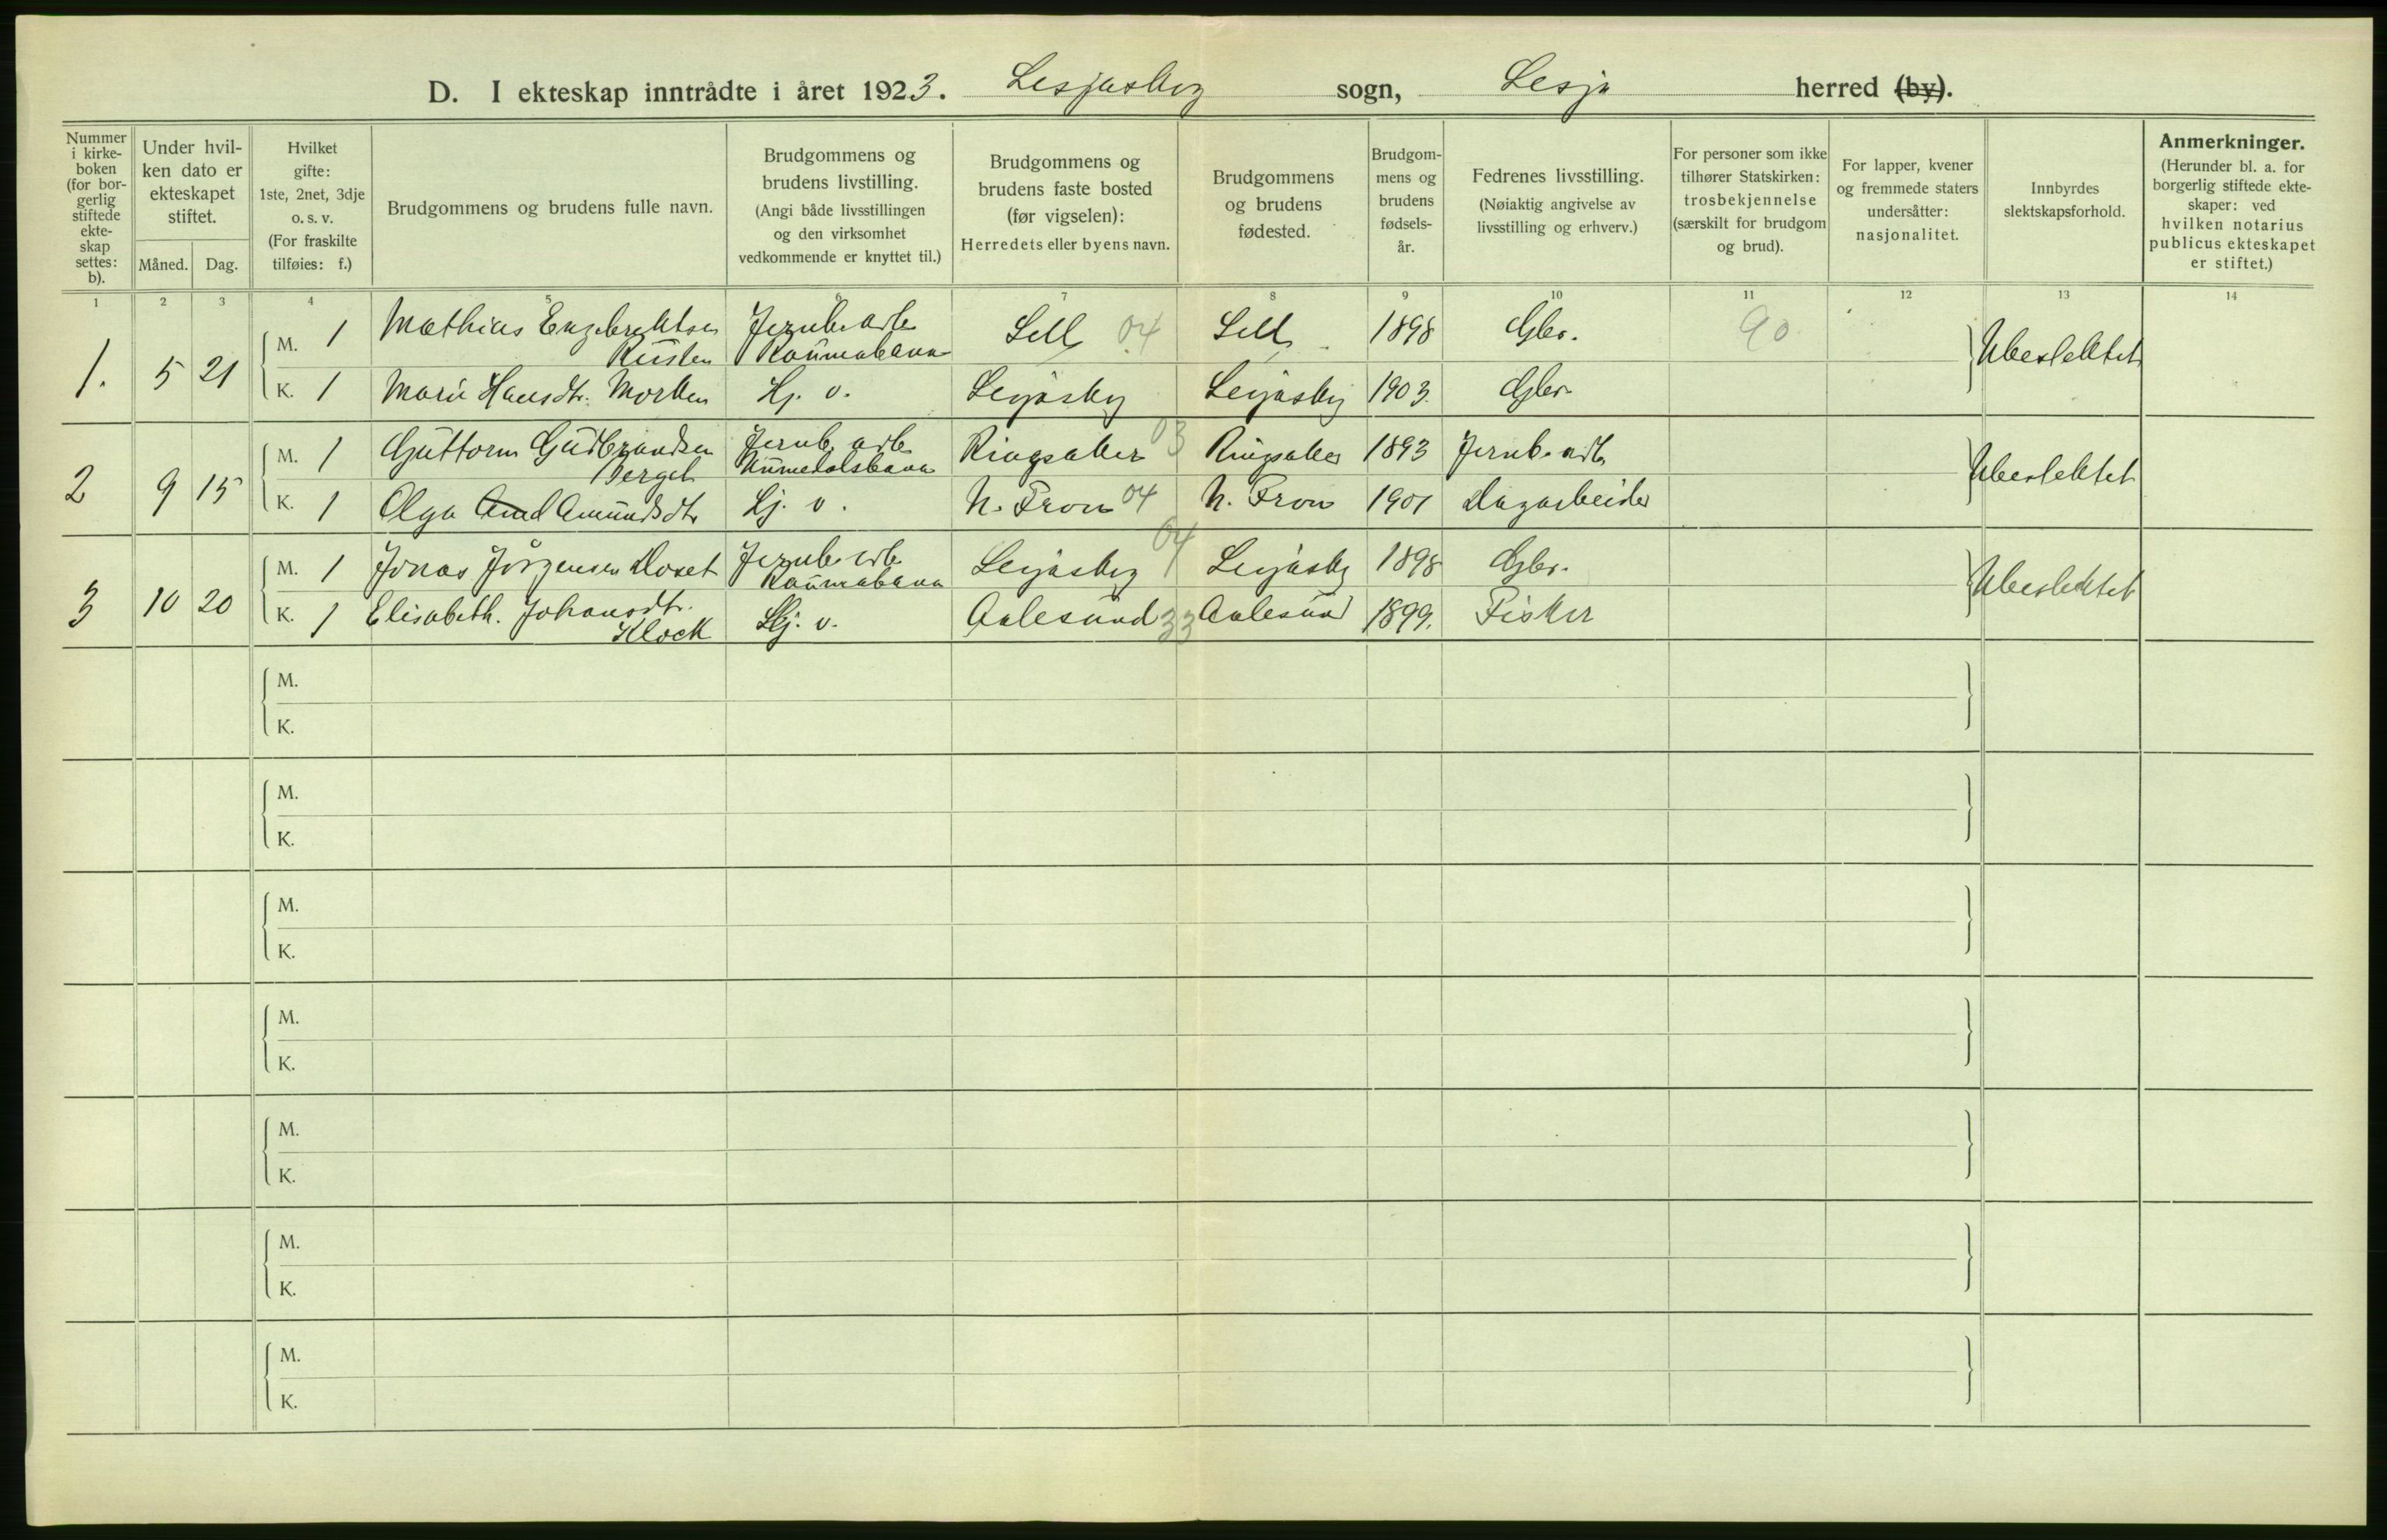 D. I ekteskap inntrådte i året 1923. Lesjaskog sogn, Lesja herred (by).
Nummer i kirke-boken (for bor-gerlig stiftede ekte-skap settes: b).
Under hvil-ken dato er ekteskapet stiftet.
Måned. Dag.
Hvilket gifte: 1ste, 2net, 3dje o. s. v. (For fraskilte tilføies: f.)
Brudgommens og brudens fulle navn.
Brudgommens og brudens livstilling. (Angi både livsstillingen og den virksomhet vedkommende er knyttet til.)
Brudgommens og brudens faste bosted (før vigselen): Herredets eller byens navn.
Brudgommens og brudens fødested.
Brudgom-mens og brudens fødsels-år.
Fedrenes livsstilling. (Nøiaktig angivelse av livsstilling og erhverv.)
For personer som ikke tilhører Statskirken: trosbekjennelse (særskilt for brudgom og brud).
For lapper, kvener og fremmede staters undersåtter: nasjonalitet.
Innbyrdes slektskapsforhold.
Anmerkninger. (Herunder bl. a. for borgerlig stiftede ekte-skaper: ved hvilken notarius publicus ekteskapet er stiftet.)
1 2 3 4 5 6 7 8 9 10 11 12 13 14
1. 5 21 M. 1 Mathias Engebrektsen Rusten Jernb. arb. Raumabana Sell 04 Sell 1898 Gbr. 90 Ubeslektet
K. 1 Marie Hansdtr. Morken Hj. v. Lesjaskog Lesjaskog 1903. Gbr.
2 9 15 M. 1 Guttorm Gudbrandsen Berget Jernb. arb. Numedalsbana Ringsaker 03 Ringsaker 1893 Jernb. arb. Ubeslektet
K. 1 Olga Amundsdtr Hj. v. N. Fron 04 N. Fron 1901 Dagarbeider
3 10 20 M. 1 Jonas Jörgensen Doset Jernb. arb. Raumabana Lesjaskog 04 Lesjaskog 1898 Gbr. Ubeslektet
K. 1 Elisabeth. Johansdtr. Klock Hj. v. Aalesund 33 Aalesund 1899. Fisker
M.
K.
M.
K.
M.
K.
M.
K.
M.
K.
M.
K.
M.
K.